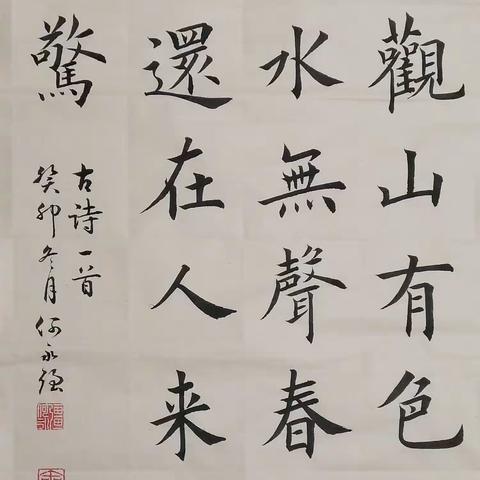 觀山有色
水無聲春
還在人来
驚
古詩一首
癸卯冬月何永强